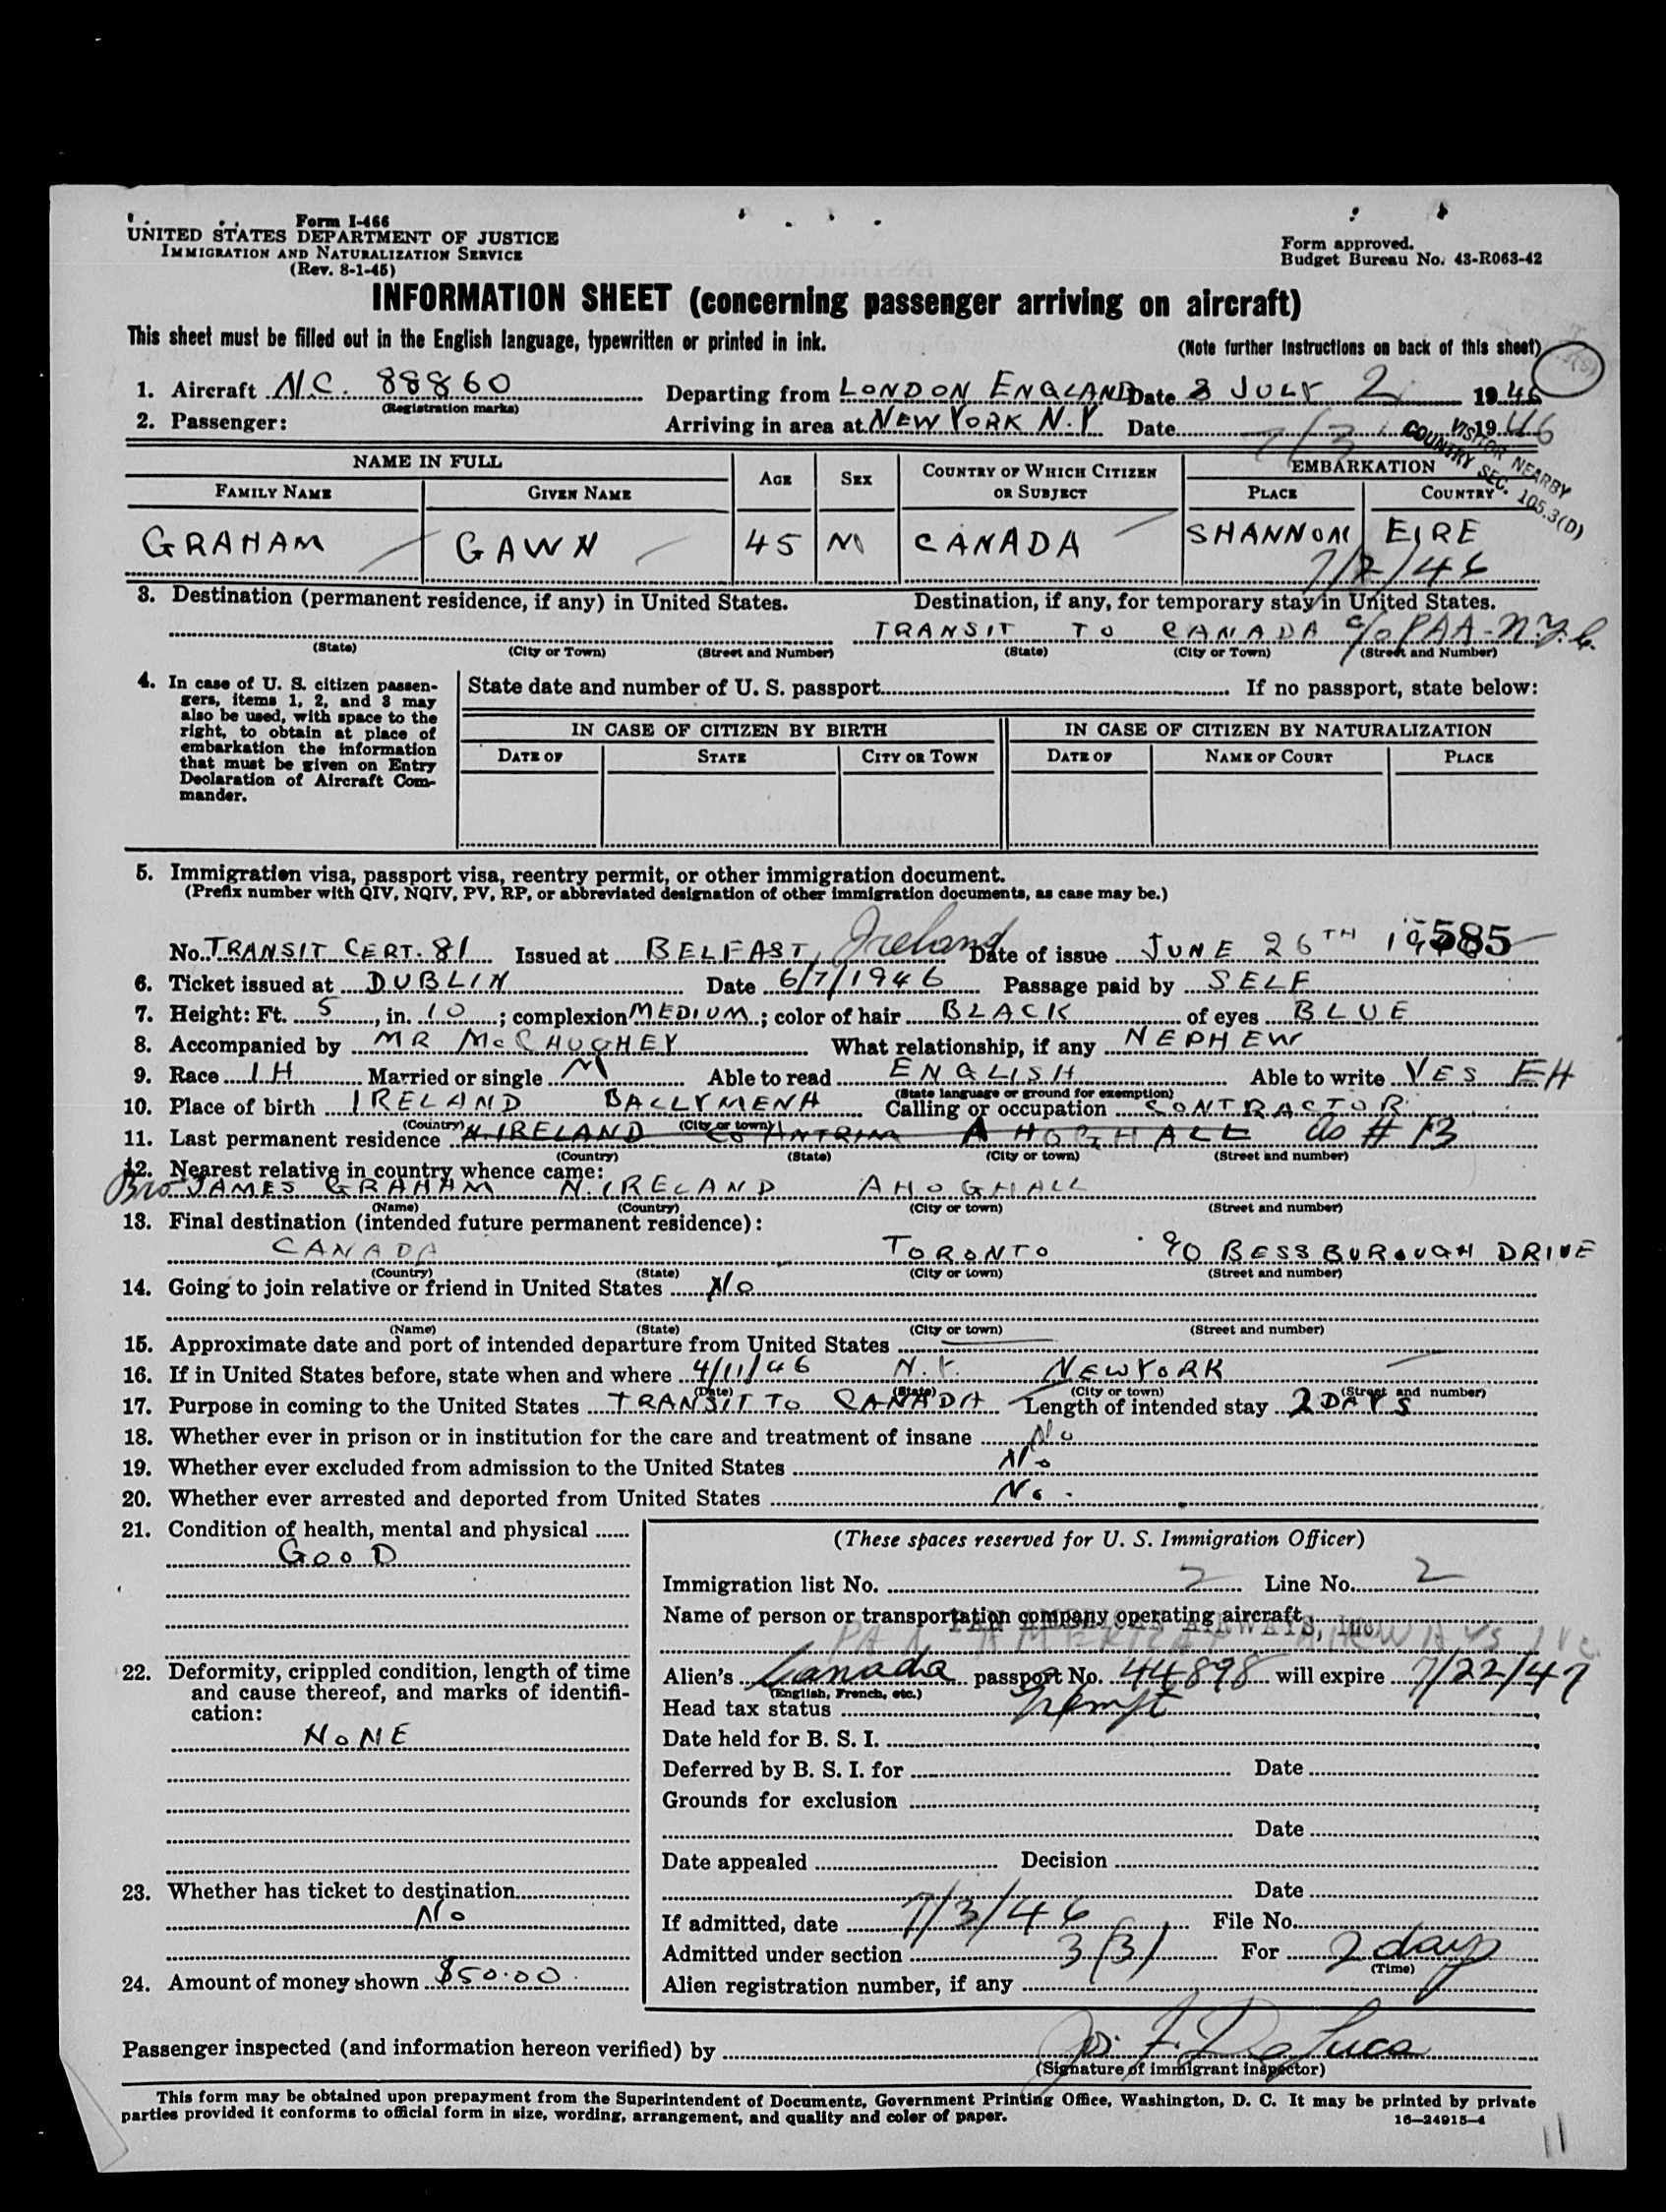 Form I-466
UNITED STATES DEPARTMENT OF JUSTICE
IMMIGRATION AND NATURALIZATION SERVICE
(Rev. 8-1-45)
Form approved.
Budget Bureau No. 43-R063-42
INFORMATION SHEET (concerning passenger arriving on aircraft)
This sheet must be filled out in the English language, typewritten or printed in ink.
(Note further instructions on back of this sheet)
1. Aircraft N.C. 88860 Departing from LONDON ENGLAND Date 3 JULY 2 1946
(Registration marks)
2. Passenger: Arriving in area at NEW YORK N.Y Date 7/3 1946
VISITOR NEARBY
COUNTRY SEC. 105.3(D)
NAME IN FULL AGE SEX COUNTRY OF WHICH CITIZEN OR SUBJECT EMBARKATION
FAMILY NAME GIVEN NAME PLACE COUNTRY
GRAHAM GAWN 45 M CANADA SHANNON EIRE
7/2/46
3. Destination (permanent residence, if any) in United States. Destination, if any, for temporary stay in United States.
TRANSIT TO CANADA c/o PAA-N.Y.C.
(State) (City or Town) (Street and Number) (State) (City or Town) (Street and Number)
4. In case of U. S. citizen passengers, items 1, 2, and 3 may also be used, with space to the right, to obtain at place of embarkation the information that must be given on Entry Declaration of Aircraft Commander.
State date and number of U. S. passport If no passport, state below:
IN CASE OF CITIZEN BY BIRTH IN CASE OF CITIZEN BY NATURALIZATION
DATE OF STATE CITY OR TOWN DATE OF NAME OF COURT PLACE
5. Immigration visa, passport visa, reentry permit, or other immigration document.
(Prefix number with QIV, NQIV, PV, RP, or abbreviated designation of other immigration documents, as case may be.)
No. TRANSIT CERT. 81 Issued at BELFAST, Ireland Date of issue JUNE 26TH 585
6. Ticket issued at DUBLIN Date 6/7/1946 Passage paid by SELF
7. Height: Ft. 5, in. 10; complexion MEDIUM; color of hair BLACK of eyes BLUE
8. Accompanied by MR McCHUGHEY What relationship, if any NEPHEW
9. Race IH Married or single M Able to read ENGLISH Able to write YES EH
(State language or ground for exemption)
10. Place of birth IRELAND BALLYMENA Calling or occupation CONTRACTOR
(Country) (City or town)
11. Last permanent residence N. IRELAND CO ANTRIM AHOGHALL as # 13
(Country) (State) (City or town) (Street and number)
12. Nearest relative in country whence came:
Bro JAMES GRAHAM N. IRELAND AHOGHALL
(Name) (Country) (City or town) (Street and number)
13. Final destination (intended future permanent residence):
CANADA TORONTO 90 BESSBUROUGH DRIVE
(Country) (State) (City or town) (Street and number)
14. Going to join relative or friend in United States No
(Name) (State) (City or town) (Street and number)
15. Approximate date and port of intended departure from United States
16. If in United States before, state when and where 4/11/46 N.Y. NEW YORK
(Date) (State) (City or town) (Street and number)
17. Purpose in coming to the United States TRANSIT TO CANADA Length of intended stay 2 DAYS
18. Whether ever in prison or in institution for the care and treatment of insane No
19. Whether ever excluded from admission to the United States No
20. Whether ever arrested and deported from United States No.
21. Condition of health, mental and physical
GOOD
22. Deformity, crippled condition, length of time and cause thereof, and marks of identification:
NONE
23. Whether has ticket to destination
No
24. Amount of money shown $50.00
(These spaces reserved for U. S. Immigration Officer)
Immigration list No. 2 Line No. 2
Name of person or transportation company operating aircraft
PAN AMERICAN AIRWAYS, Inc
PAN AMERICAN AIRWAYS INC.
Alien's Canada passport No. 44898 will expire 7/22/47
(English, French, etc.)
Head tax status Exempt
Date held for B. S. I.
Deferred by B. S. I. for Date
Grounds for exclusion
Date
Date appealed Decision
Date
If admitted, date 7/3/46 File No.
Admitted under section 3(3) For 2 days
(Time)
Alien registration number, if any
Passenger inspected (and information hereon verified) by F. De Luca
(Signature of immigrant inspector)
This form may be obtained upon prepayment from the Superintendent of Documents, Government Printing Office, Washington, D. C. It may be printed by private
parties provided it conforms to official form in size, wording, arrangement, and quality and color of paper.
16—24915-4
11